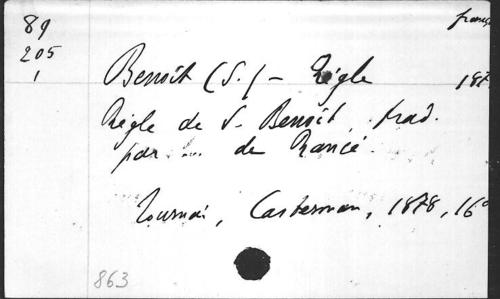 89
205
1
franç
Benoît (S.) – Règle 187
Règle de S. Benoît, trad.
par ... de Rancé.
Tournai, Casterman, 1878, 16°
863